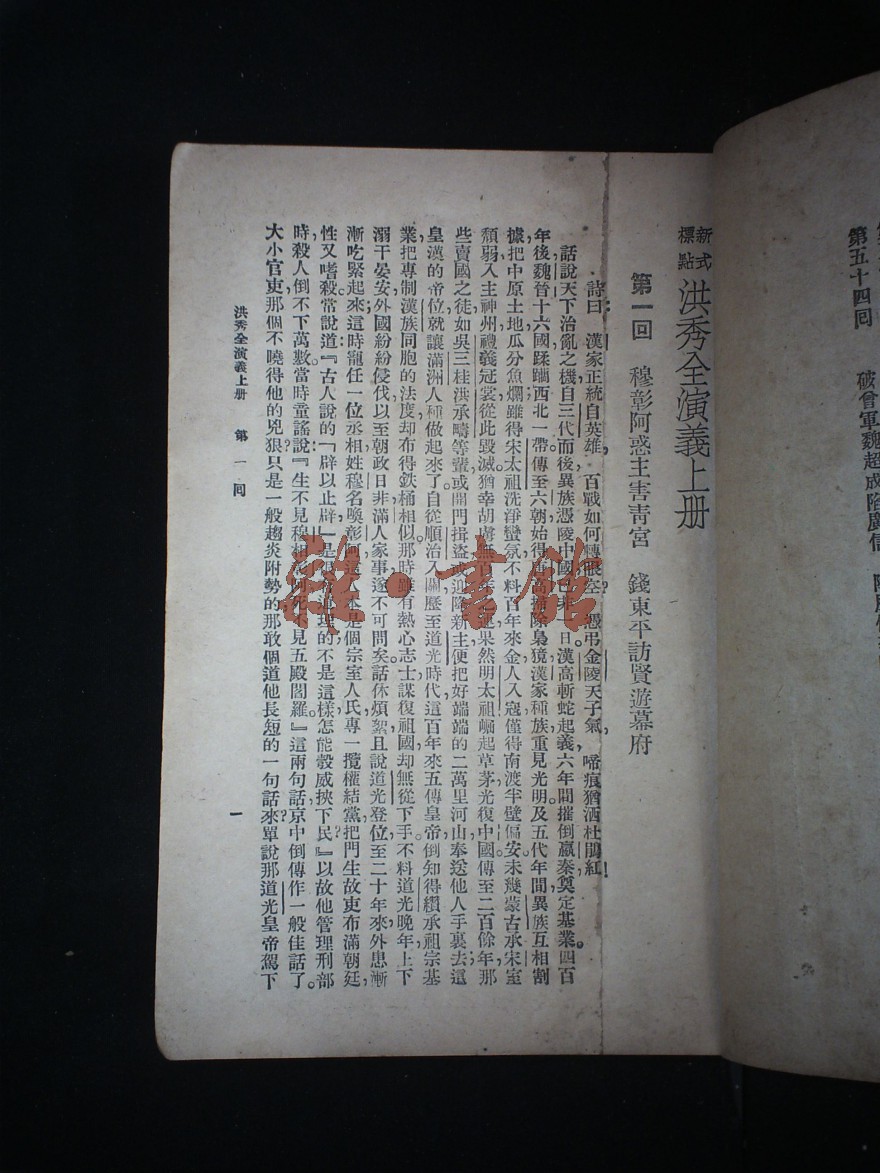 第五十四回 破曾軍魏超成陷廣信
新式
標點
洪秀全演義上册
第一回 穆彰阿惑主害青宮 錢東平訪賢遊幕府
詩曰 漢家正統自英雄，百戰如何轉眼空？憑弔金陵天子氣，啼痕猶洒杜鵑紅！
話說天下治亂之機自三代而後異族憑陵中國已非一日。漢高斬蛇起義六年間摧倒嬴秦奠定基業。四百
年後魏晉十六國蹂躪西北一帶。傳至六朝始得隋高掃除梟獍漢家種族重見光明及五代年間異族互相割
據，把中原土地瓜分魚爛雖得宋太祖洗淨蠻氛不料百年來金人入寇僅得南渡半壁偏安。未幾蒙古承宋室
頹弱入主神州禮義冠裳從此毀滅猶幸胡虜無百年之運果然明太祖崛起草茅光復中國，傳至二百餘年那
些賣國之徒如吳三桂洪承疇等輩或開門揖盜或迎降新主，便把好端端的二萬里河山奉送他人手裏去這
皇漢的帝位就讓滿洲人種做起來了。自從順治入關歷至道光時代這百年來五傳皇帝倒知得纘承祖宗基
業，把專制漢族同胞的法度却布得鉄桶相似。那時雖有熱心志士謀復祖國却無從下手不料道光晚年上下
溺于晏安外國紛紛侵伐以至朝政日非滿人家事遂不可問矣。話休煩絮且說道光登位至二十年來外患漸
漸吃緊起來；這時寵任一位丞相姓穆名喚彰阿這人本是個宗室人氏專一攬權結黨，把門生故吏布滿朝廷，
性又嗜殺常說道：『古人說的「辟以止辟」是很有道理的不是這樣怎能彀威挾下民？』以故他管理刑部
時，殺人倒不下萬數。當時童謠說：『生不見穆相阿，死不見五殿閻羅』這兩句話京中倒傳作一般佳話了。
大小官吏那個不曉得他的兇狠？只是一般趨炎附勢的那敢個道他長短的一句話來？單說那道光皇帝駕下
洪秀全演義上册 第一回
一
雅·書館